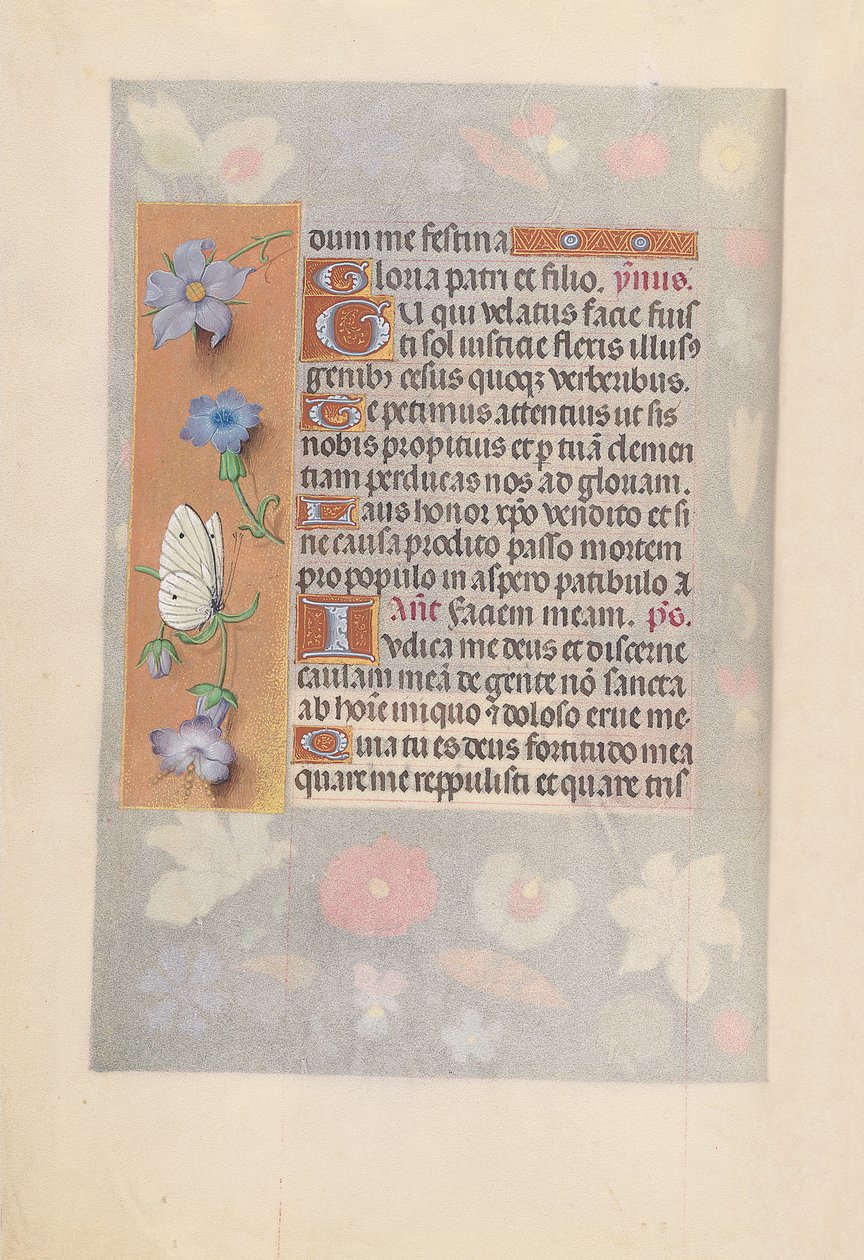 dum me festina
Gloria patri et filio. ẏnus.
Qui velatus facie fuis
ti sol iusticie flexis illusꝰ
genibꝫ cesus quoqꝫ verberibus.
Te petimus attentius ut sis
nobis propitius et ꝑ tuā clemen
tiam perducas nos ad gloriam.
Laus honor xp̄o vendito et si
ne causa prodito passo mortem
pro populo in aspero patibulo A
Añt Faciem meam. p̄s.
Iudica me deus et discerne
causam meā de gente nō sancta
ab hoīe iniquo ⁊ doloso erue me.
Quia tu es deus fortitudo mea
quare me reppulisti et quare tris